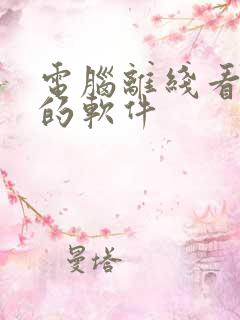 電腦離綫看
的軟件
曼塔